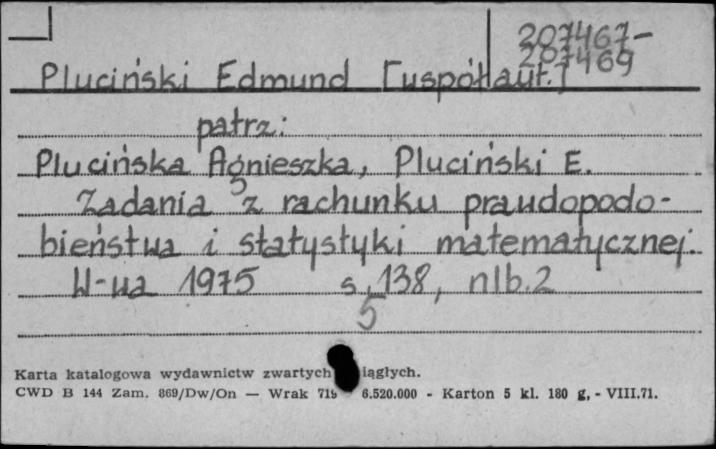 207467-
207469
Pluciński Edmund [współaut.]
patrz:
Plucińska Agnieszka, Pluciński E.
Zadania z rachunku prawdopodo-
bieństwa i statystyki matematycznej.
W-wa 1975 s. 138, nlb. 2
5
Karta katalogowa wydawnictw zwartych iągłych.
CWD B 144 Zam. 869/Dw/On — Wrak 719 6.520.000 - Karton 5 kl. 180 g, - VIII.71.